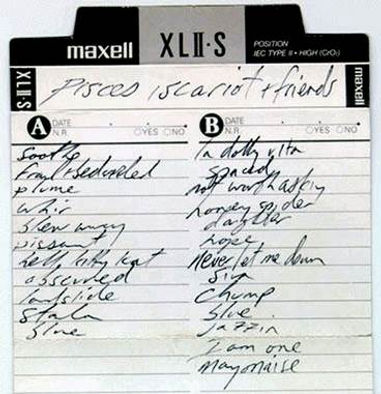 maxell XLII·S POSITION
IEC TYPE II • HIGH (CrO₂)
XLII·S
maxell
Pisces iscariot + friends
A DATE
N.R. YES NO
soothe
frail + bedazzled
plume
whir
blew away
pissant
hello kitty kat
obscured
landslide
starla
blue
B DATE
N.R. YES NO
la dolly vita
spaced
not worth asking
honey spider
daughter
hope
Never let me down
Sun
Chump
blue
jazzin
I am one
Mayonaise